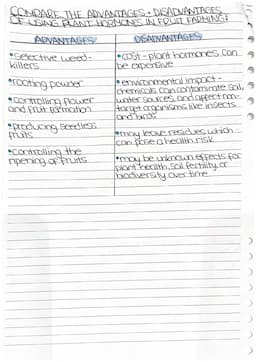 COMPARE THE ADVANTAGES + DISADVANTAGES
OF USING PLANT HORMONES IN FRUIT FARMING:
ADVANTAGES
•selective weed-
killers
•rooting powder
•controlling flower
and fruit formation
•producing seedless
fruits
•Controlling the
ripening of fruits
DISADVANTAGES
•cost - plant hormones can
be expensive
•environmental impact -
chemicals can contaminate soil,
water sources, and affect non-
target organisms like insects
and birds
•may leave residues which
can pose a health risk
•may be unknown effects for
plant health, soil fertility, or
biodiversity over time